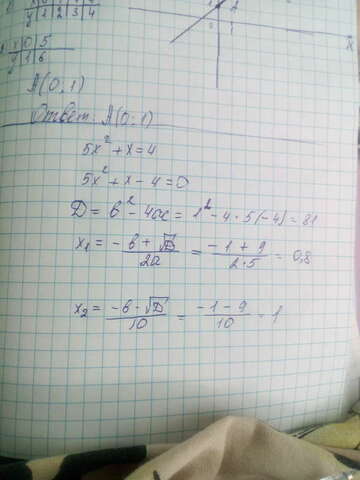 y 1 2 3 4
2
1
x 0 5
y 1 6
A(0;1)
Ответ: A(0;1)
5x² + x = 4
5x² + x - 4 = 0
D = b² - 4ac = 1² - 4 · 5(-4) = 81
x₁ = (-b + √D)/(2a) = (-1 + 9)/(2·5) = 0,8
x₂ = (-b - √D)/10 = (-1 - 9)/10 = 1